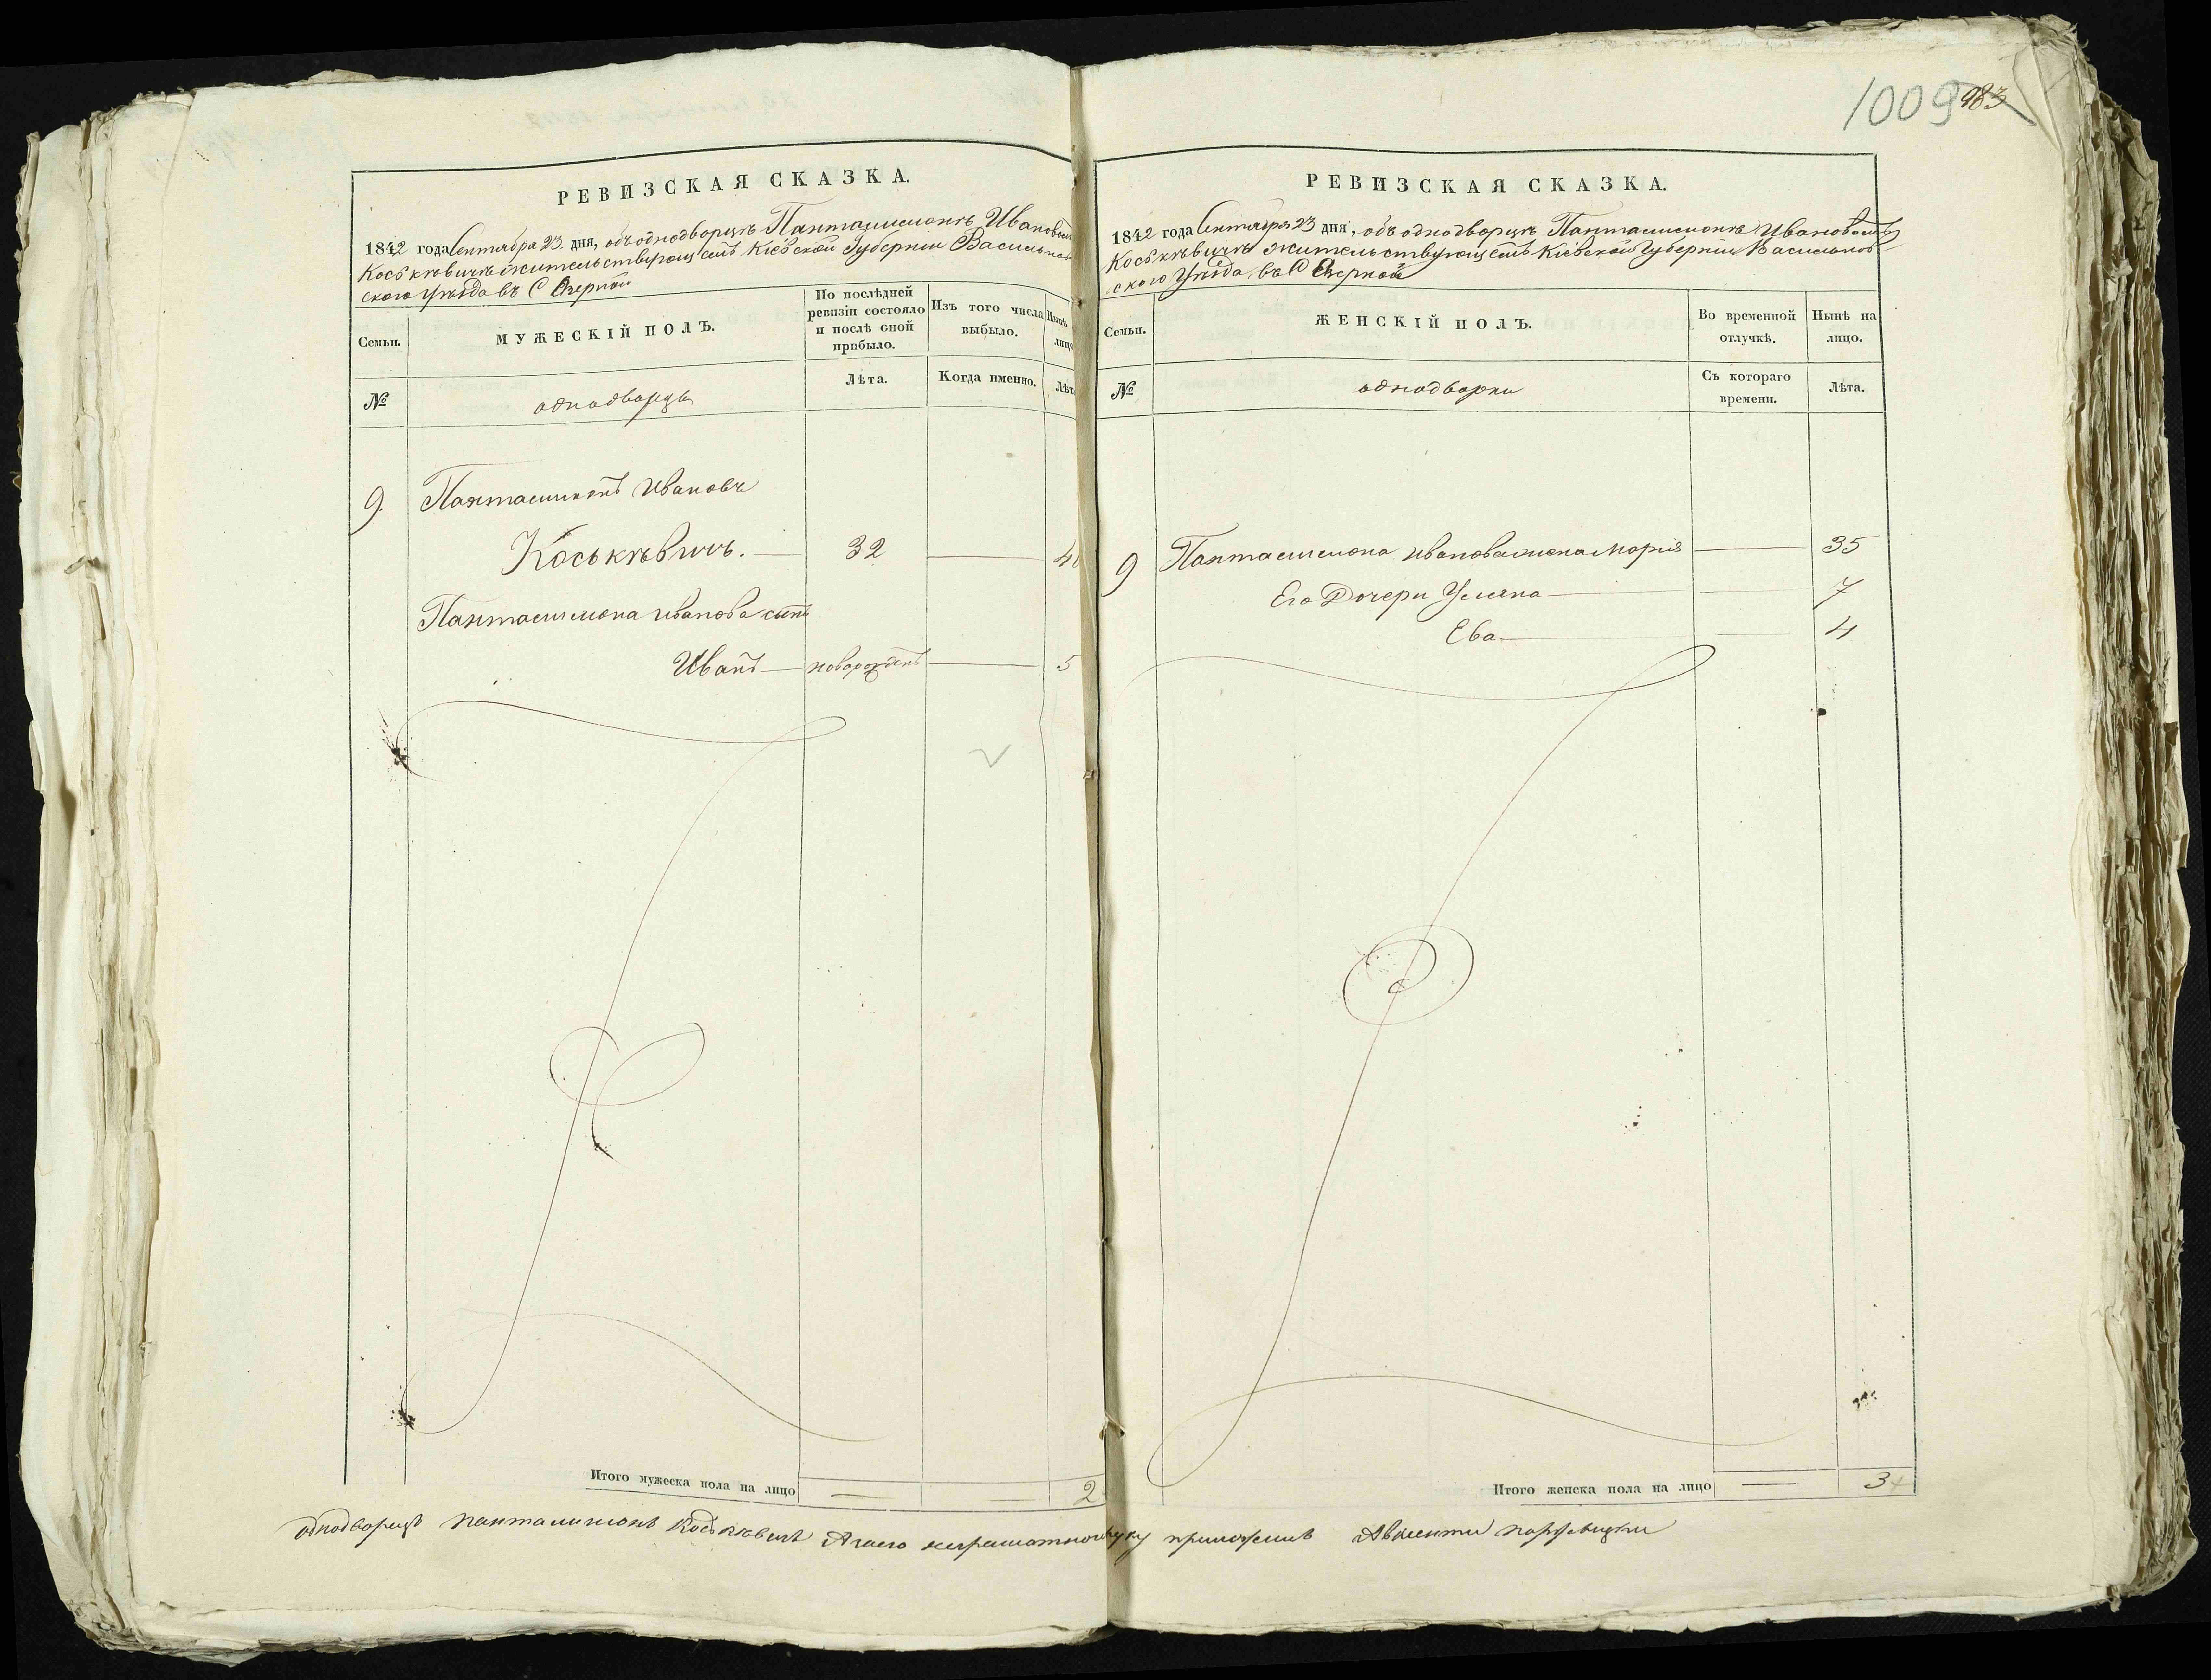 1009 983
РЕВИЗСКАЯ СКАЗКА.
1842 года Сентября 23 дня, объ однодворцѣ Панталимонѣ Ивановомъ
Коськѣвичѣ жительствующемъ Кіевской Губерніи Васильков
скаго Уѣзда въ С Озерной
Семьи.
МУЖЕСКІЙ ПОЛЪ.
По послѣдней
ревизіи состояло
и послѣ оной
прибыло.
Изъ того числа
выбыло.
Нынѣ
лицо
№
однодворцы
Лѣта.
Когда именно.
Лѣта
9. Панталимонъ Ивановъ
Коськѣвичъ. — 32 — 40
Панталимона Иванова сынъ
Иванъ — новорожденъ — 5
Итого мужеска пола на лицо — — 2
РЕВИЗСКАЯ СКАЗКА.
1842 года Сентября 23 дня, объ однодворцѣ Панталимонѣ Ивановомъ
Коськѣвичѣ жительствующемъ Кіевской Губерніи Васильков
скаго Уѣзда въ С Озерной
Семьи.
ЖЕНСКІЙ ПОЛЪ.
Во временной
отлучкѣ.
Нынѣ на
лицо.
№
однодворки
Съ котораго
времени.
Лѣта.
9 Панталимона Иванова жена Марія — 35
Его Дочери Уляна — 7
Ева — 4
Итого женска пола на лицо — 3
однодворецъ Панталимонъ Коськѣвичъ А за его неграмотного руку приложилъ